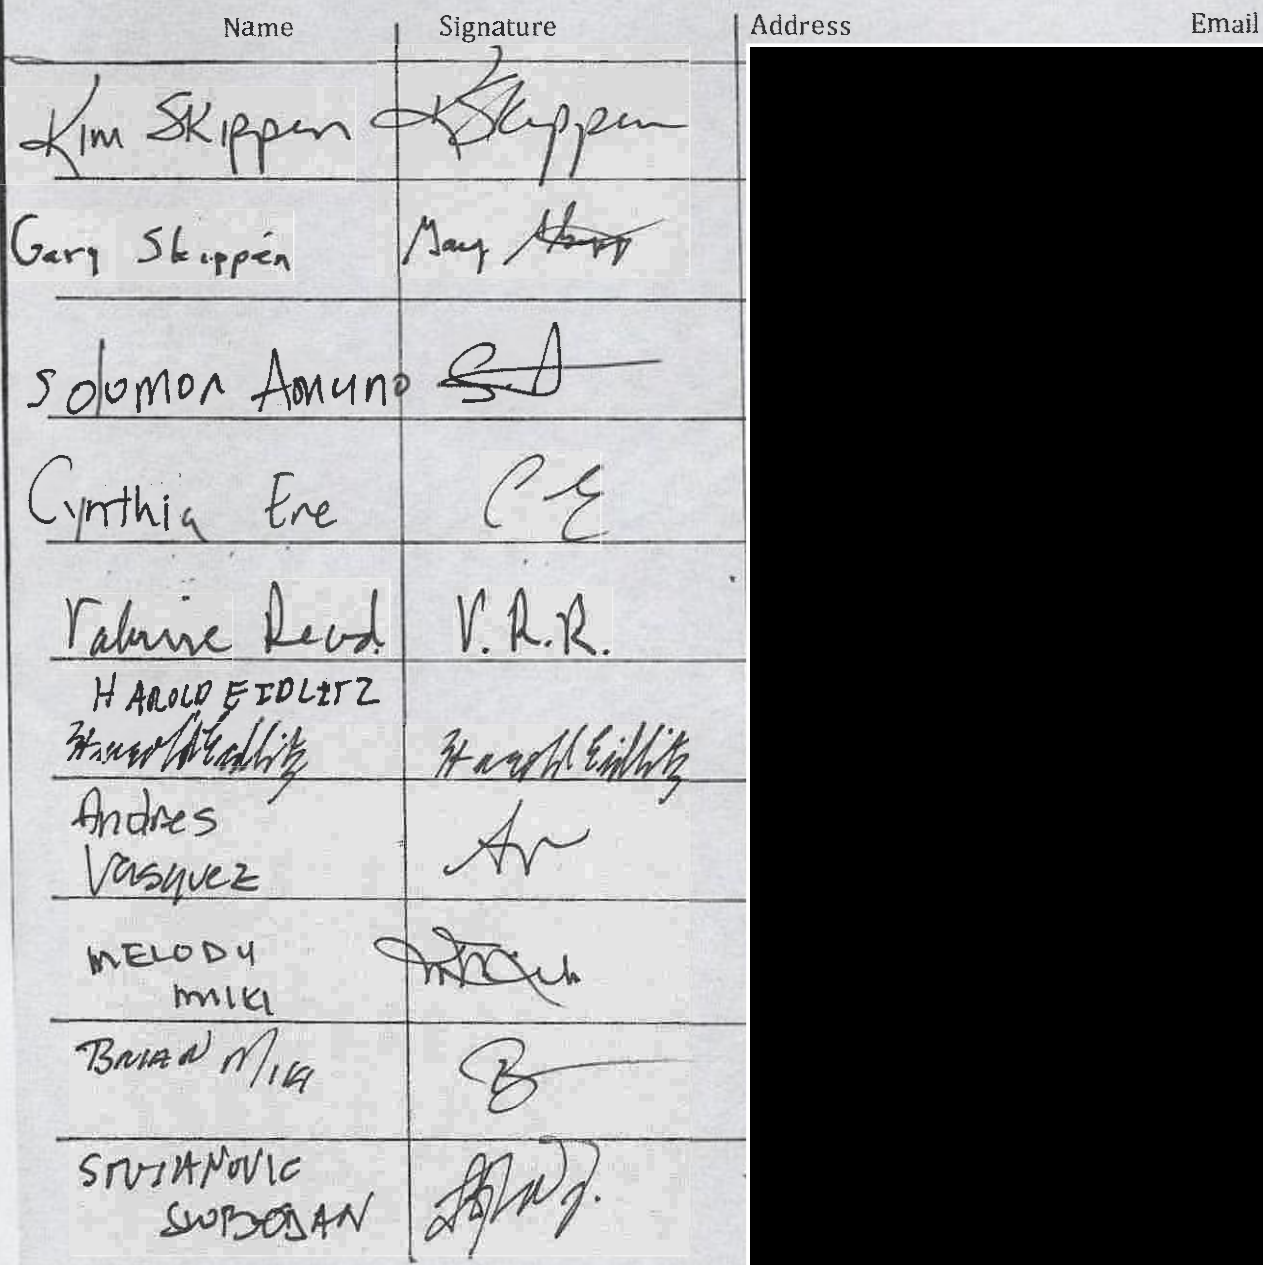 Name Signature Address Email
Kim Skippen KSkippen
Gary Skippen Gary
Solomon Amuno S.A
Cynthia Ene C E
V.R.R.
HAROLD EIDLITZ
Harold Eidlitz Harold Eidlitz
Andres
Vasquez
MELODY
MIKI
BRIAN MIKI B
STOJANOVIC
SLOBODAN